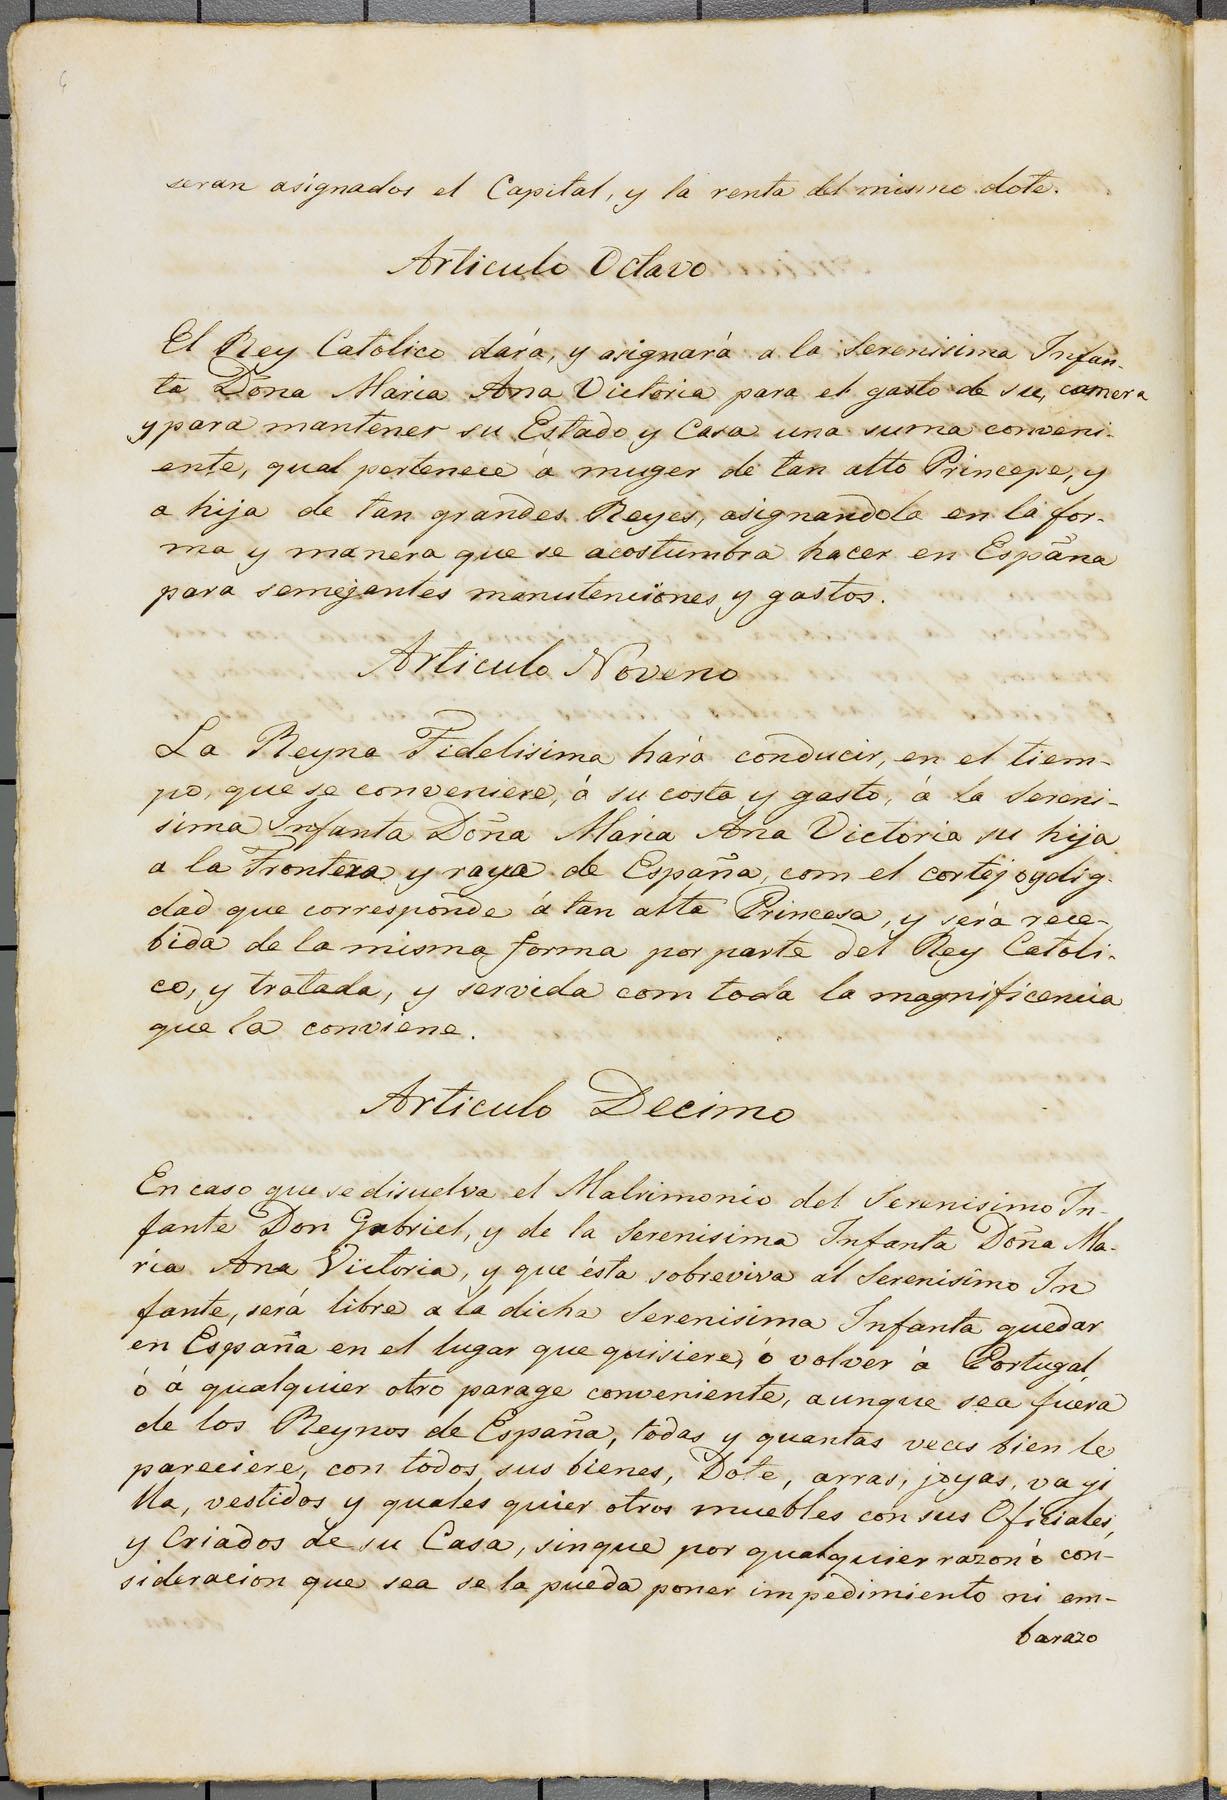 6
seran asignados el Capital, y la renta del mismo dote.
Articulo Octavo
El Rey Catolico dará, y asignará a la Serenisima Infan-
ta Doña Maria Ana Victoria para el gasto de su, camera
y para mantener su Estado y Casa una suma conveni-
ente, qual pertenece á muger de tan alto Princepe, y
a hija de tan grandes Reyes, asignandola en la for-
ma y manera que se acostumbra hacer en España
para semejantes manutenciones y gastos.
Articulo Noveno
La Reyna Fidelisima hará conducir, en el tiem-
po, que se conveniere, á su costa y gasto, á la Sereni-
sima Infanta Doña Maria Ana Victoria su hija
a la Frontera y raya de España, com el cortejo y dig-
dad que corresponde á tan alta Princesa, y será rece-
bida de la misma forma por parte del Rey Catoli-
co, y tratada, y servida com toda la magnificencia
que la conviene.
Articulo Decimo
En caso que se disuelva el Matrimonio del Serenisimo In-
fante Don Gabriel, y de la Serenisima Infanta Doña Ma-
ria Ana Victoria, y que ésta sobreviva al Serenisimo In
fante, será libre a la dicha Serenisima Infanta quedar
en España en el lugar que quisiere, ó volver á Portugal,
ó á qualquier otro parage conveniente, aunque sea fuera
de los Reynos de España, todas y quantas veces bien le
pareciere, con todos sus bienes, Dote, arras, joyas, vagi
lla, vestidos y quales quier otros muebles con sus Oficiales,
y Criados de su Casa, sin que por qualquier razon ó con-
sideracion que sea se la pueda poner impedimiento ni em-
barazo